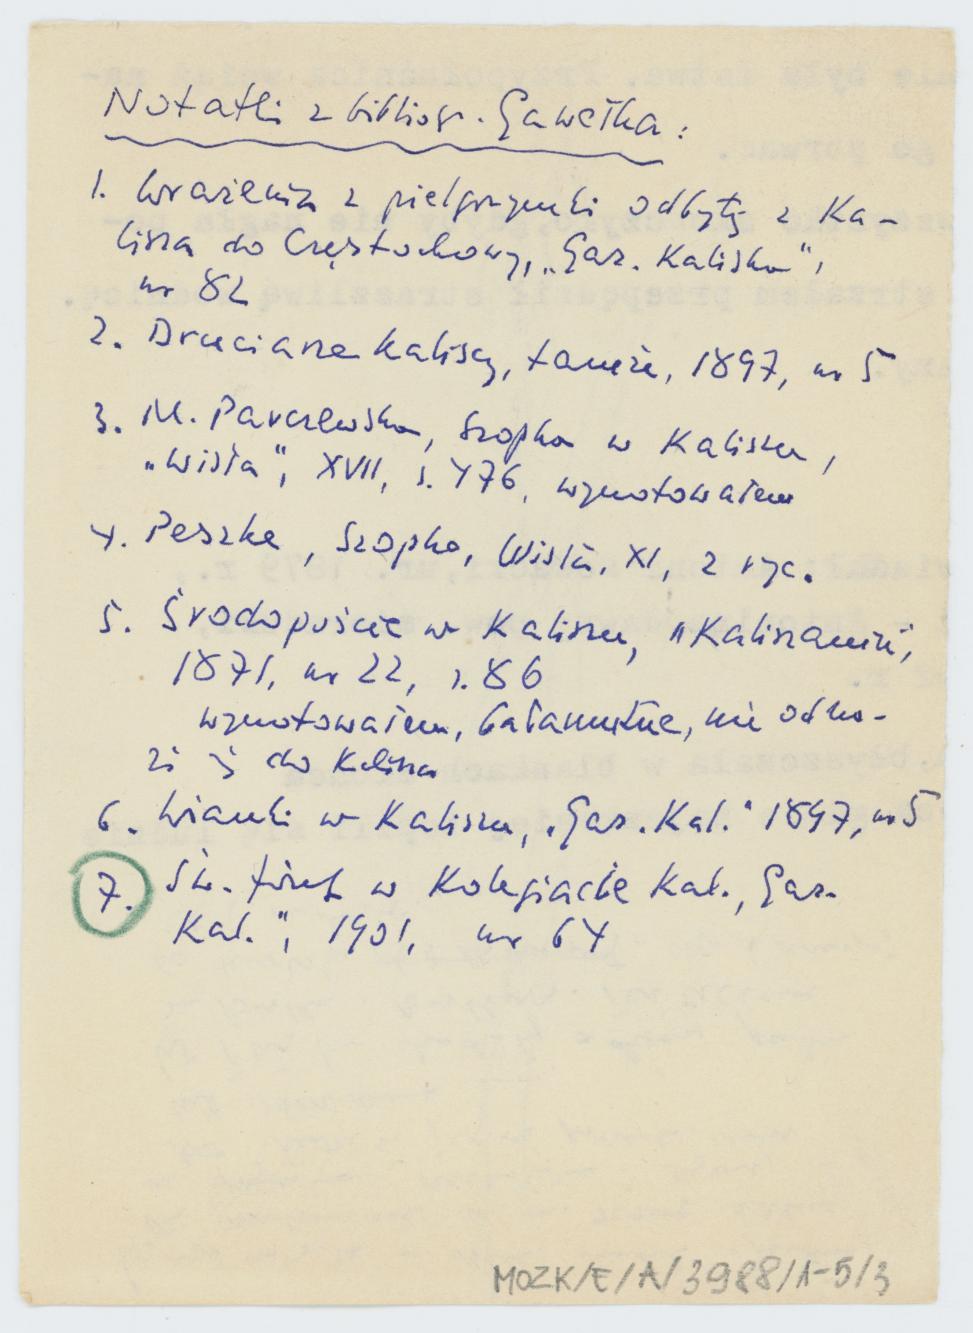 Notatki z bibliogr. Gawełka:
1. Wrażenia z pielgrzymki odbytej z Ka-
lisza do Częstochowy, „Gaz. Kaliska",
nr 82
2. Druciarze kaliscy, tamże, 1897, nr 5
3. M. Parczewska, Szopka w Kaliszu,
„Wisła", XVII, s. 476, wynotowałem
4. Peszke, Szopka, Wisła, XI, z ryc.
5. Środopoście w Kaliszu, „Kaliszanin",
1871, nr 22, s. 86
wynotowałem, bałamutne, nie odno-
si się do Kalisza
6. Wianki w Kaliszu, „Gaz. Kal." 1897, nr 5
7. Św. Józef w Kolegiacie Kal., Gaz.
Kal.", 1901, nr 64
MOZK/E/A/3988/1-5/3